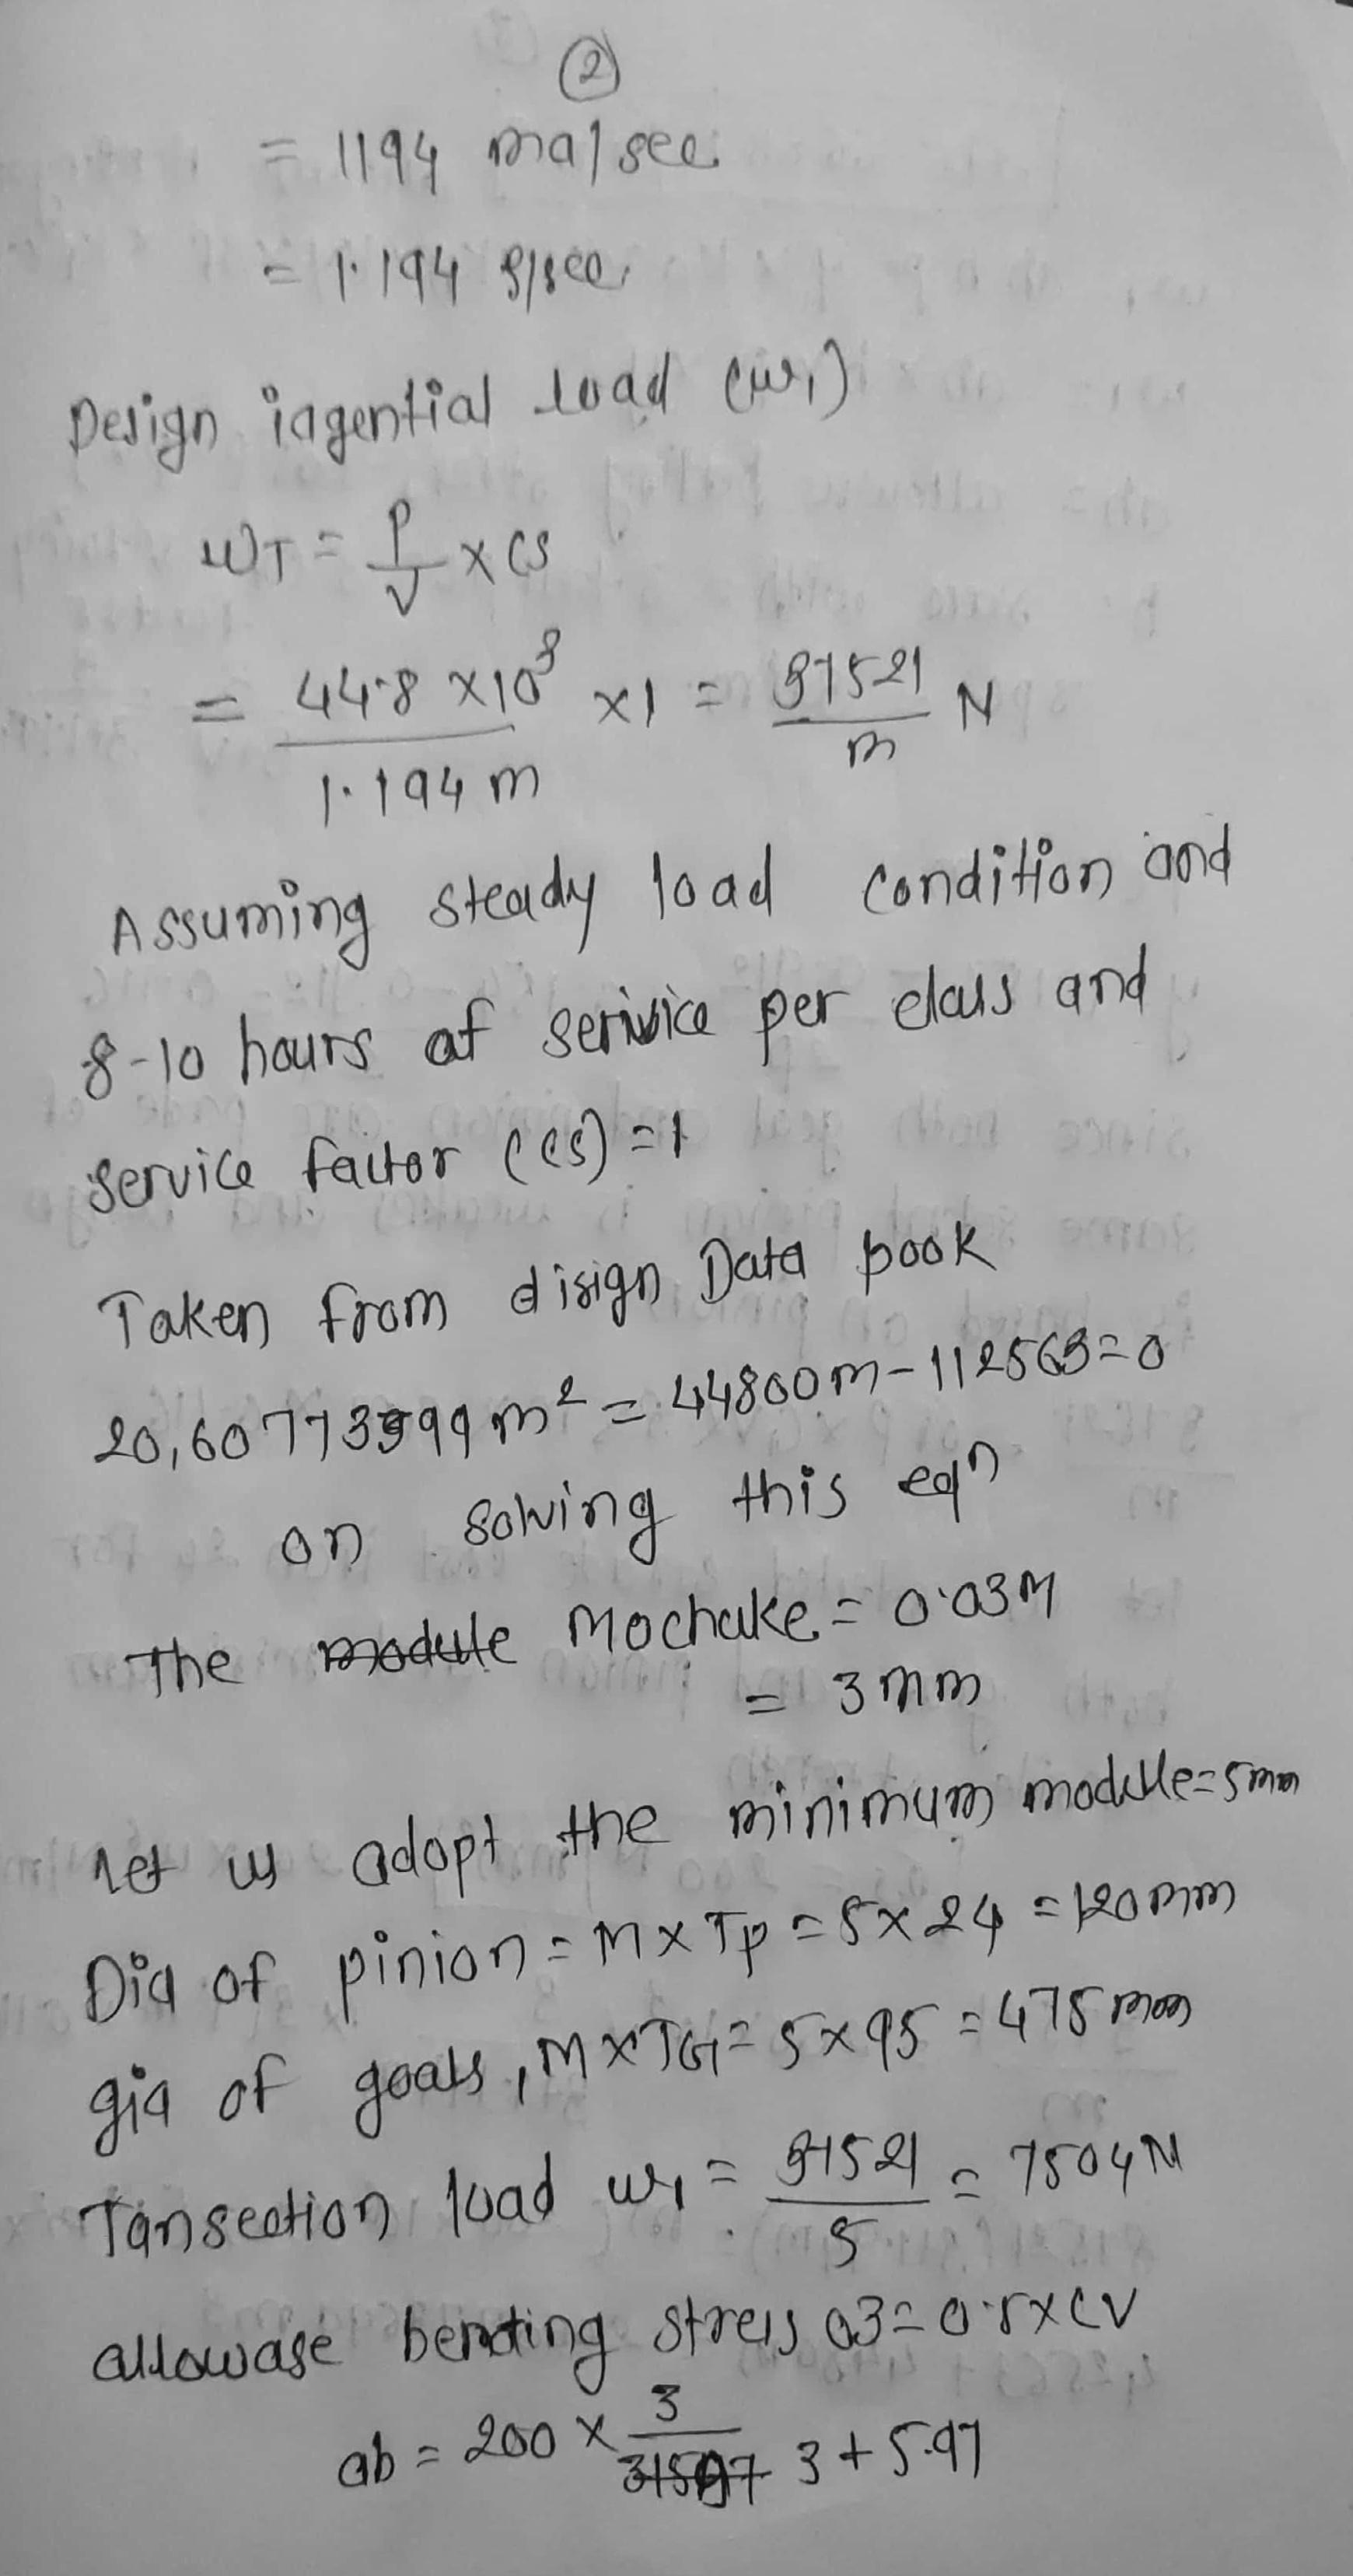 2
= 1194 ma/see
= 1.194 s/see
Design iagential load (w1)
WT = P/V x CS
= 44.8 x10³/1.194 m x1 = 37521/m N
Assuming steady load condition and
8-10 hours of serivice per daus and
service faitor (cs) = 1
Taken from disign Data book
20,60773399 m² = 44800m - 112563 = 0
on solving this eqn
The module Mochake = 0.03M
= 3 mm
let us adopt the minimum module = 5mm
Dia of pinion = M x Tp = 5 x 24 = 120mm
gia of goals, M x TG = 5 x 95 = 475 mm
Tansection load w1 = 37521/5 = 7504N
allowase bending stress = 0.5 x CV
ab = 200 x 3/3 + 5.97